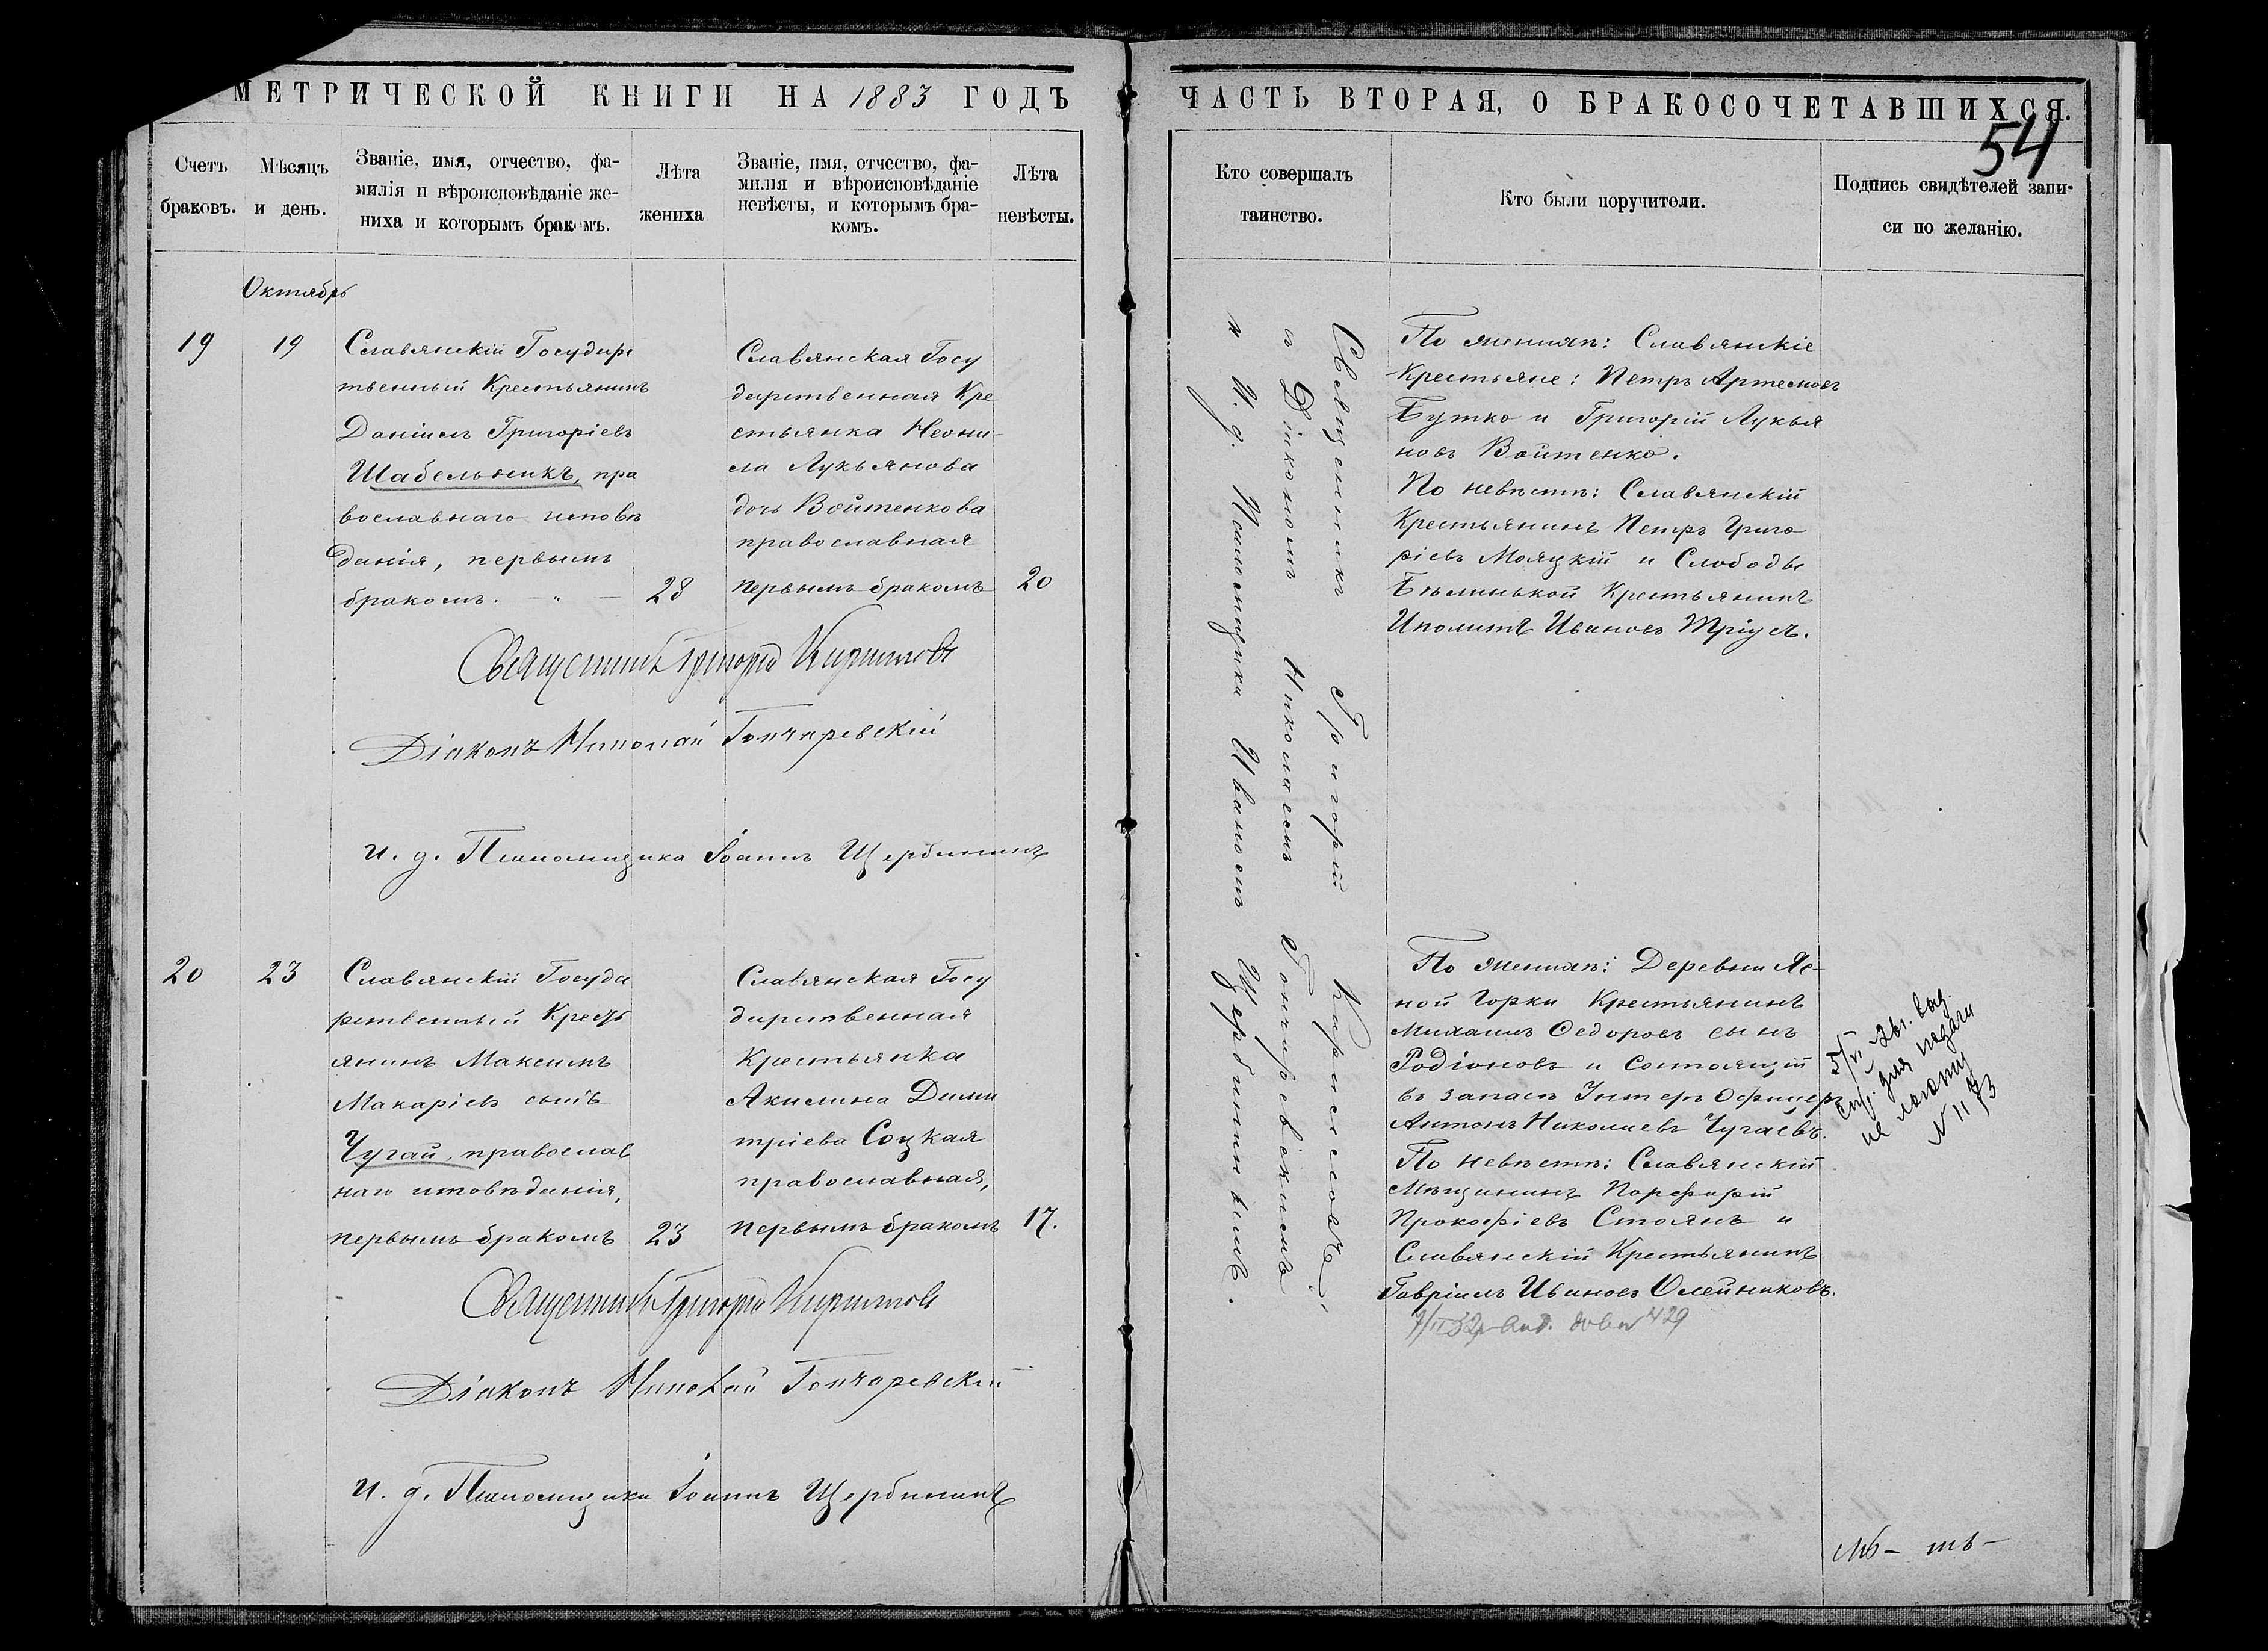 МЕТРИЧЕСКОЙ КНИГИ НА 1883 ГОДЪ
Счетъ браковъ.
Мѣсяцъ и день.
Званіе, имя, отчество, фа-
милія и вѣроисповѣданіе же-
ниха и которымъ бракомъ.
Лѣта
жениха
Званіе, имя, отчество, фа-
милія и вѣроисповѣданіе
невѣсты, и которымъ бра-
комъ.
Лѣта
невѣсты.
Октябрь
19
19
Славянскій Государс
твенный Крестьянинъ
Даніилъ Григоріевъ
Шабельникъ, пра
вославнаго исповѣ
данія, первымъ
бракомъ. — " —
28
Славянская Госу
дарственная Кре
стьянка Неони-
ла Лукьянова
дочь Войтенкова
православная
первымъ бракомъ
20
Священникъ Григорій Кирилловъ
Діаконъ Николай Гончаревскій
И. д. Псаломщика Іоаннъ Щербининъ
20
23
Славянскій Госуда
рственный Кресть
янинъ Максимъ
Макаріевъ сынъ
Чугай, православ
наго исповѣданія,
первымъ бракомъ
23
Славянская Госу
дарственная
Крестьянка
Акилина Дими
тріева Соцкая
православная,
первымъ бракомъ
17.
Священникъ Григорій Кирилловъ
Діаконъ Николай Гончаревскій
И. д. Псаломщика Іоаннъ Щербининъ
ЧАСТЬ ВТОРАЯ, О БРАКОСОЧЕТАВШИХСЯ.
54
Кто совершалъ
таинство.
Кто были поручители.
Подпись свидѣтелей запи-
си по желанію.
Священникъ Григорій Кирилловъ
съ Діакономъ Николаемъ Гончаревскимъ
и И. д. Псаломщика Иваномъ Щербининымъ.
По женихѣ: Славянскіе
Крестьяне: Петръ Артемовъ
Бутко и Григорій Лукья
новъ Войтенко.
По невѣстѣ: Славянскій
Крестьянинъ Петръ Григо
ріевъ Мояцкій и Слободы
Бѣлинькой Крестьянинъ
Иполитъ Ивановъ Тріусъ.
По женихѣ: Деревни Яс-
ной Горки Крестьянинъ
Михаилъ Ѳедоровъ сынъ
Родіоновъ и Состоящій
въ запасѣ Унтеръ Офицеръ
Антонъ Николаевъ Чугаевъ.
По невѣстѣ: Славянскій
Мѣщанинъ Порфирій
Прокофіевъ Стоянъ и
Славянскій Крестьянинъ
Гавріилъ Ивановъ Олейниковъ.
429
для подачи